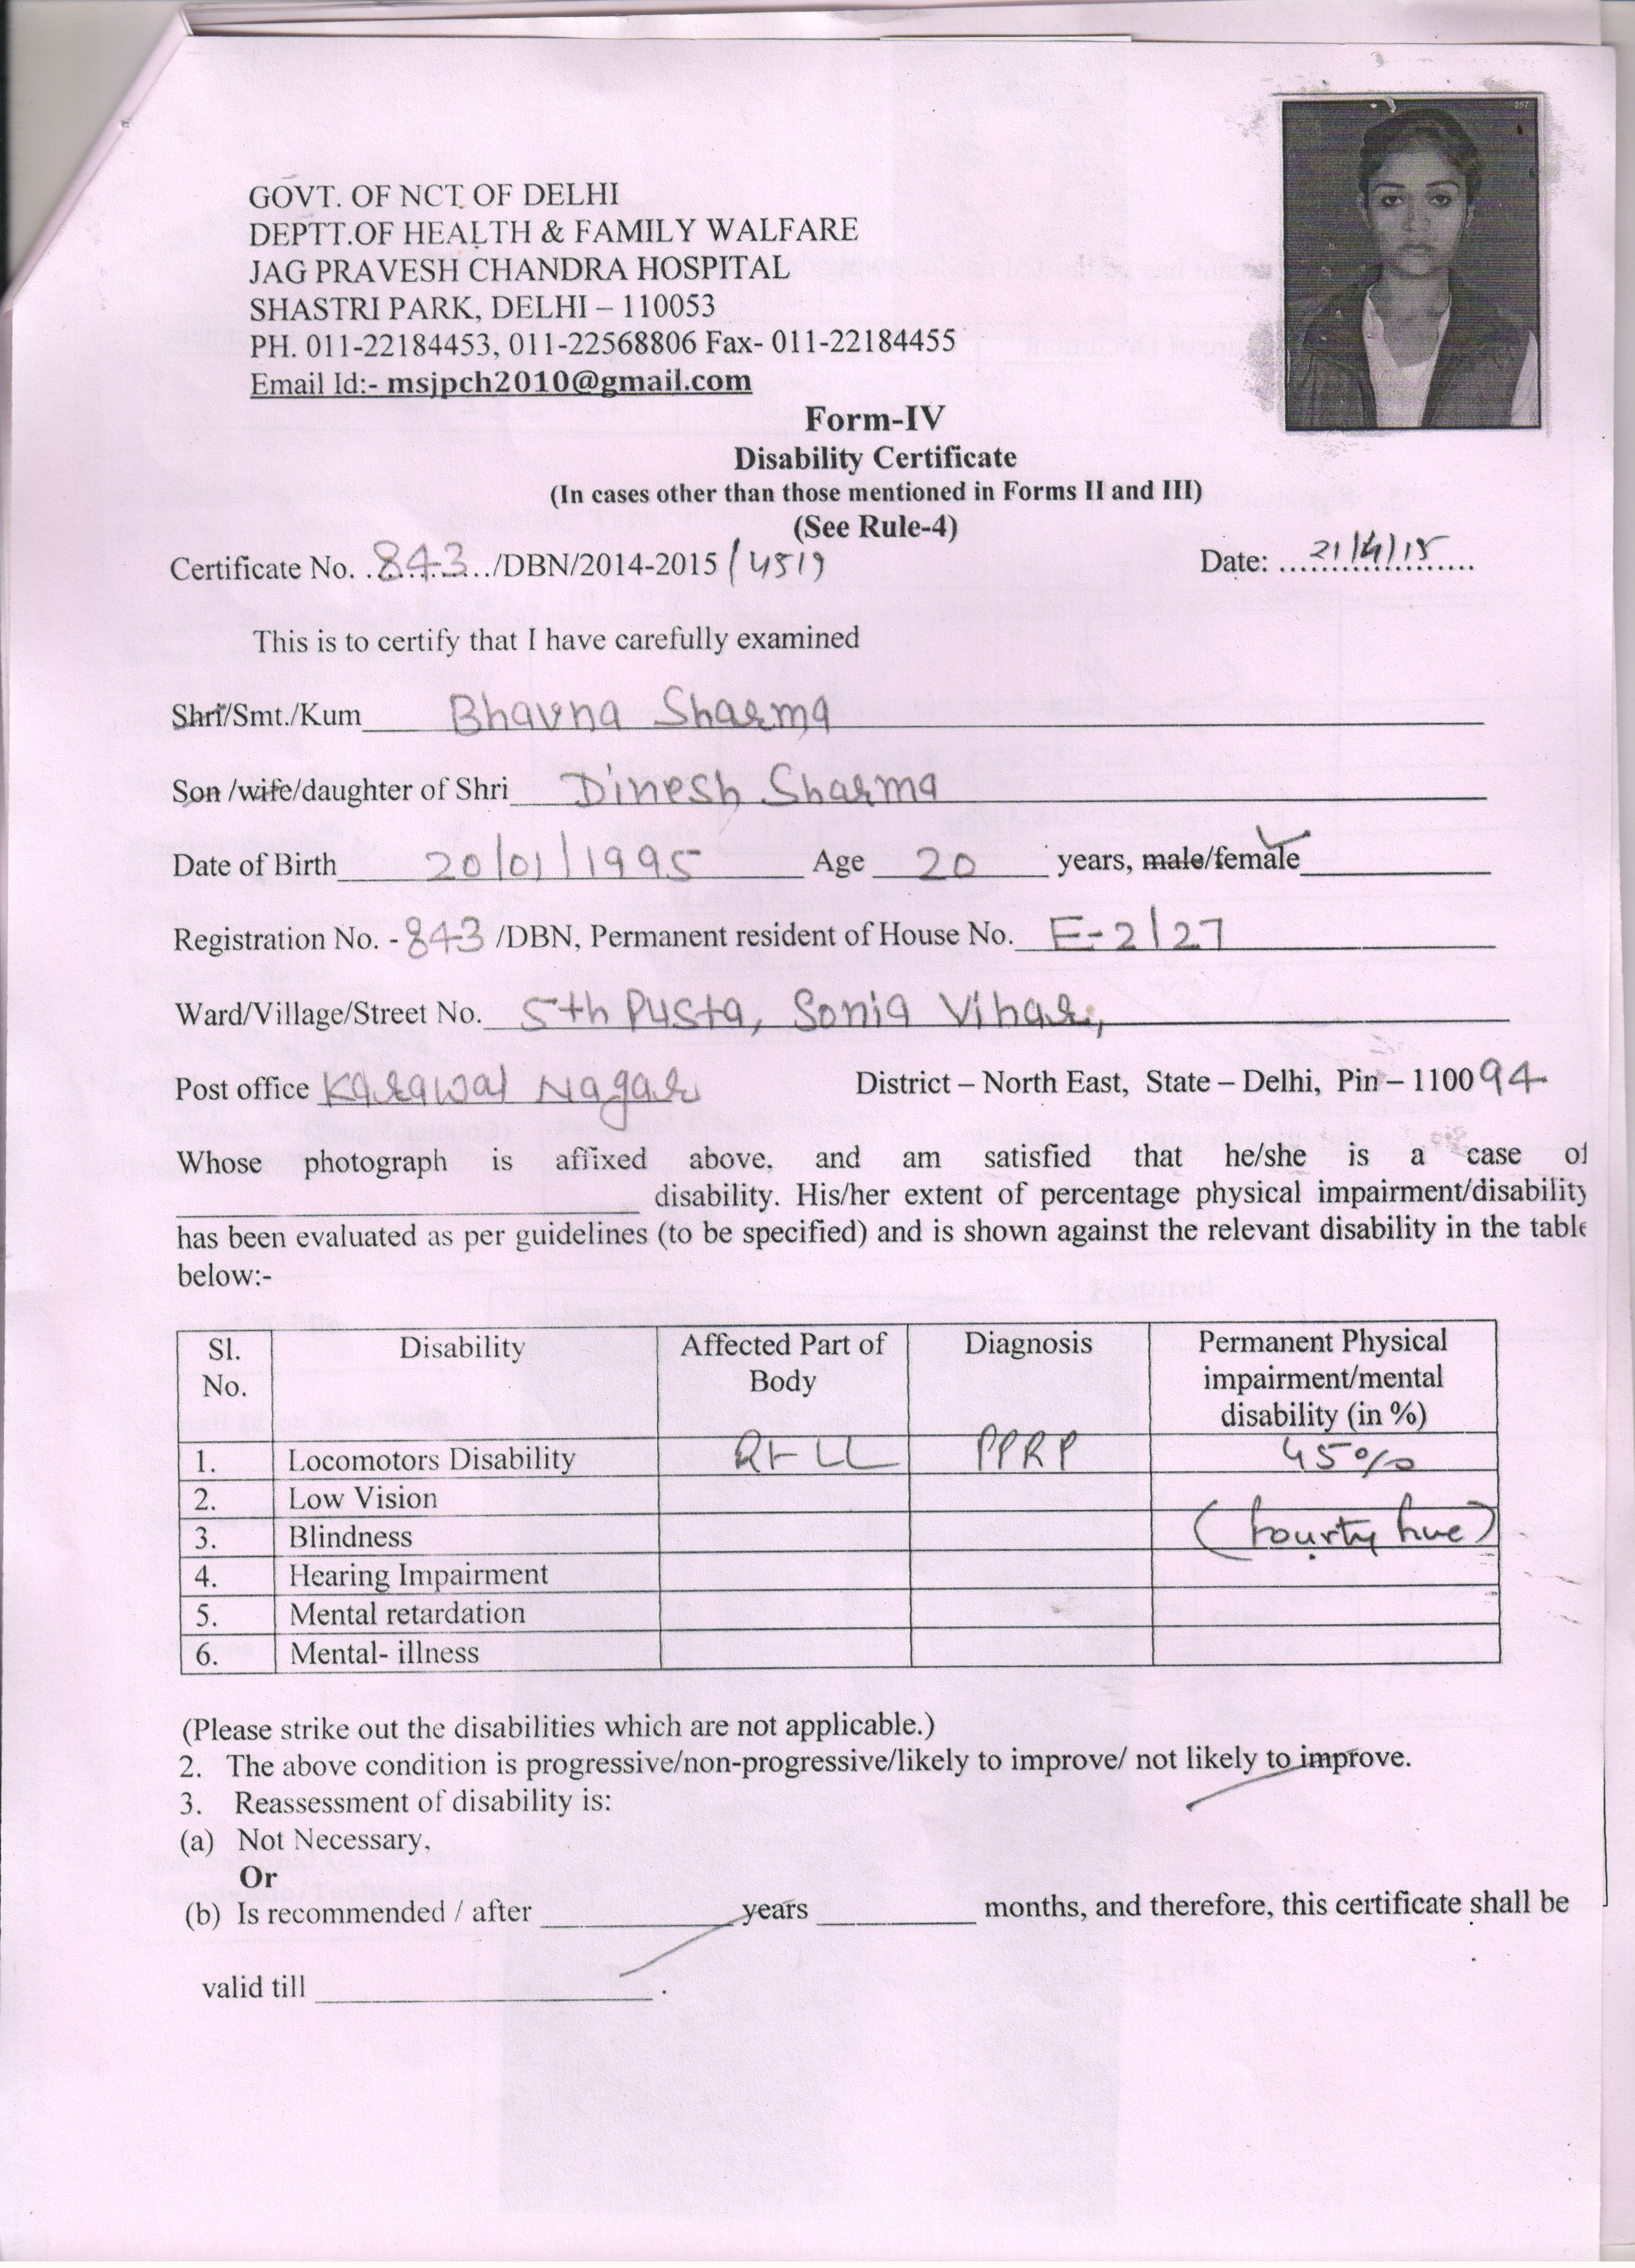 GOVT. OF NCT OF DELHI
DEPTT.OF HEALTH & FAMILY WALFARE
JAG PRAVESH CHANDRA HOSPITAL
SHASTRI PARK, DELHI – 110053
PH. 011-22184453, 011-22568806 Fax- 011-22184455
Email Id:- msjpch2010@gmail.com
Form-IV
Disability Certificate
(In cases other than those mentioned in Forms II and III)
(See Rule-4)
Certificate No. 843 /DBN/2014-2015 /4519 Date: 21/4/15
This is to certify that I have carefully examined
Shri/Smt./Kum Bhavna Sharma
Son /wife/daughter of Shri Dinesh Sharma
Date of Birth 20/01/1995 Age 20 years, male/female
Registration No. - 843 /DBN, Permanent resident of House No. E-2/27
Ward/Village/Street No. 5th Pusta, Sonia Vihar,
Post office Karawal Nagar District – North East, State – Delhi, Pin – 110094
Whose photograph is affixed above, and am satisfied that he/she is a case of
disability. His/her extent of percentage physical impairment/disability
has been evaluated as per guidelines (to be specified) and is shown against the relevant disability in the table
below:-
Sl. No. Disability Affected Part of Body Diagnosis Permanent Physical impairment/mental disability (in %)
1. Locomotors Disability Rt LL PPRP 45%
2. Low Vision
3. Blindness (fourty five)
4. Hearing Impairment
5. Mental retardation
6. Mental- illness
(Please strike out the disabilities which are not applicable.)
2. The above condition is progressive/non-progressive/likely to improve/ not likely to improve.
3. Reassessment of disability is:
(a) Not Necessary,
Or
(b) Is recommended / after years months, and therefore, this certificate shall be
valid till .